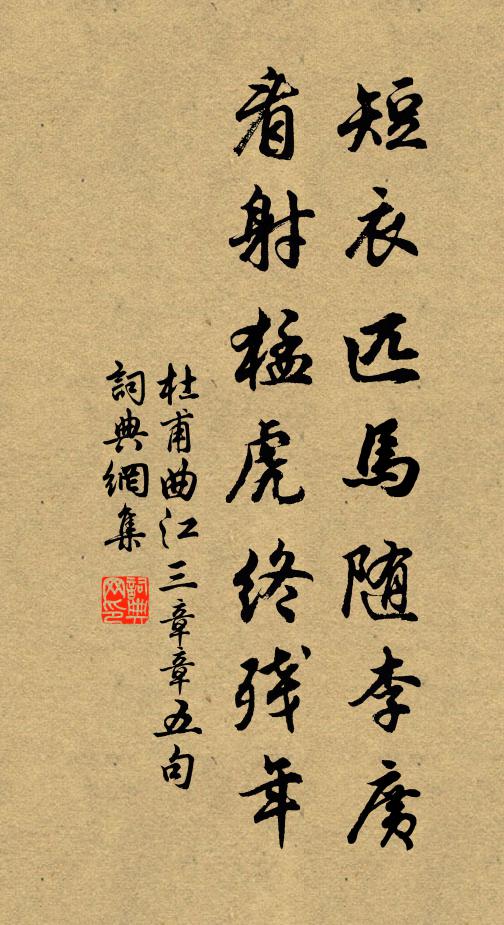 短衣匹馬随李廣
看射猛虎终残年
杜甫曲江三章章五句
詞典網集
詞典
网印